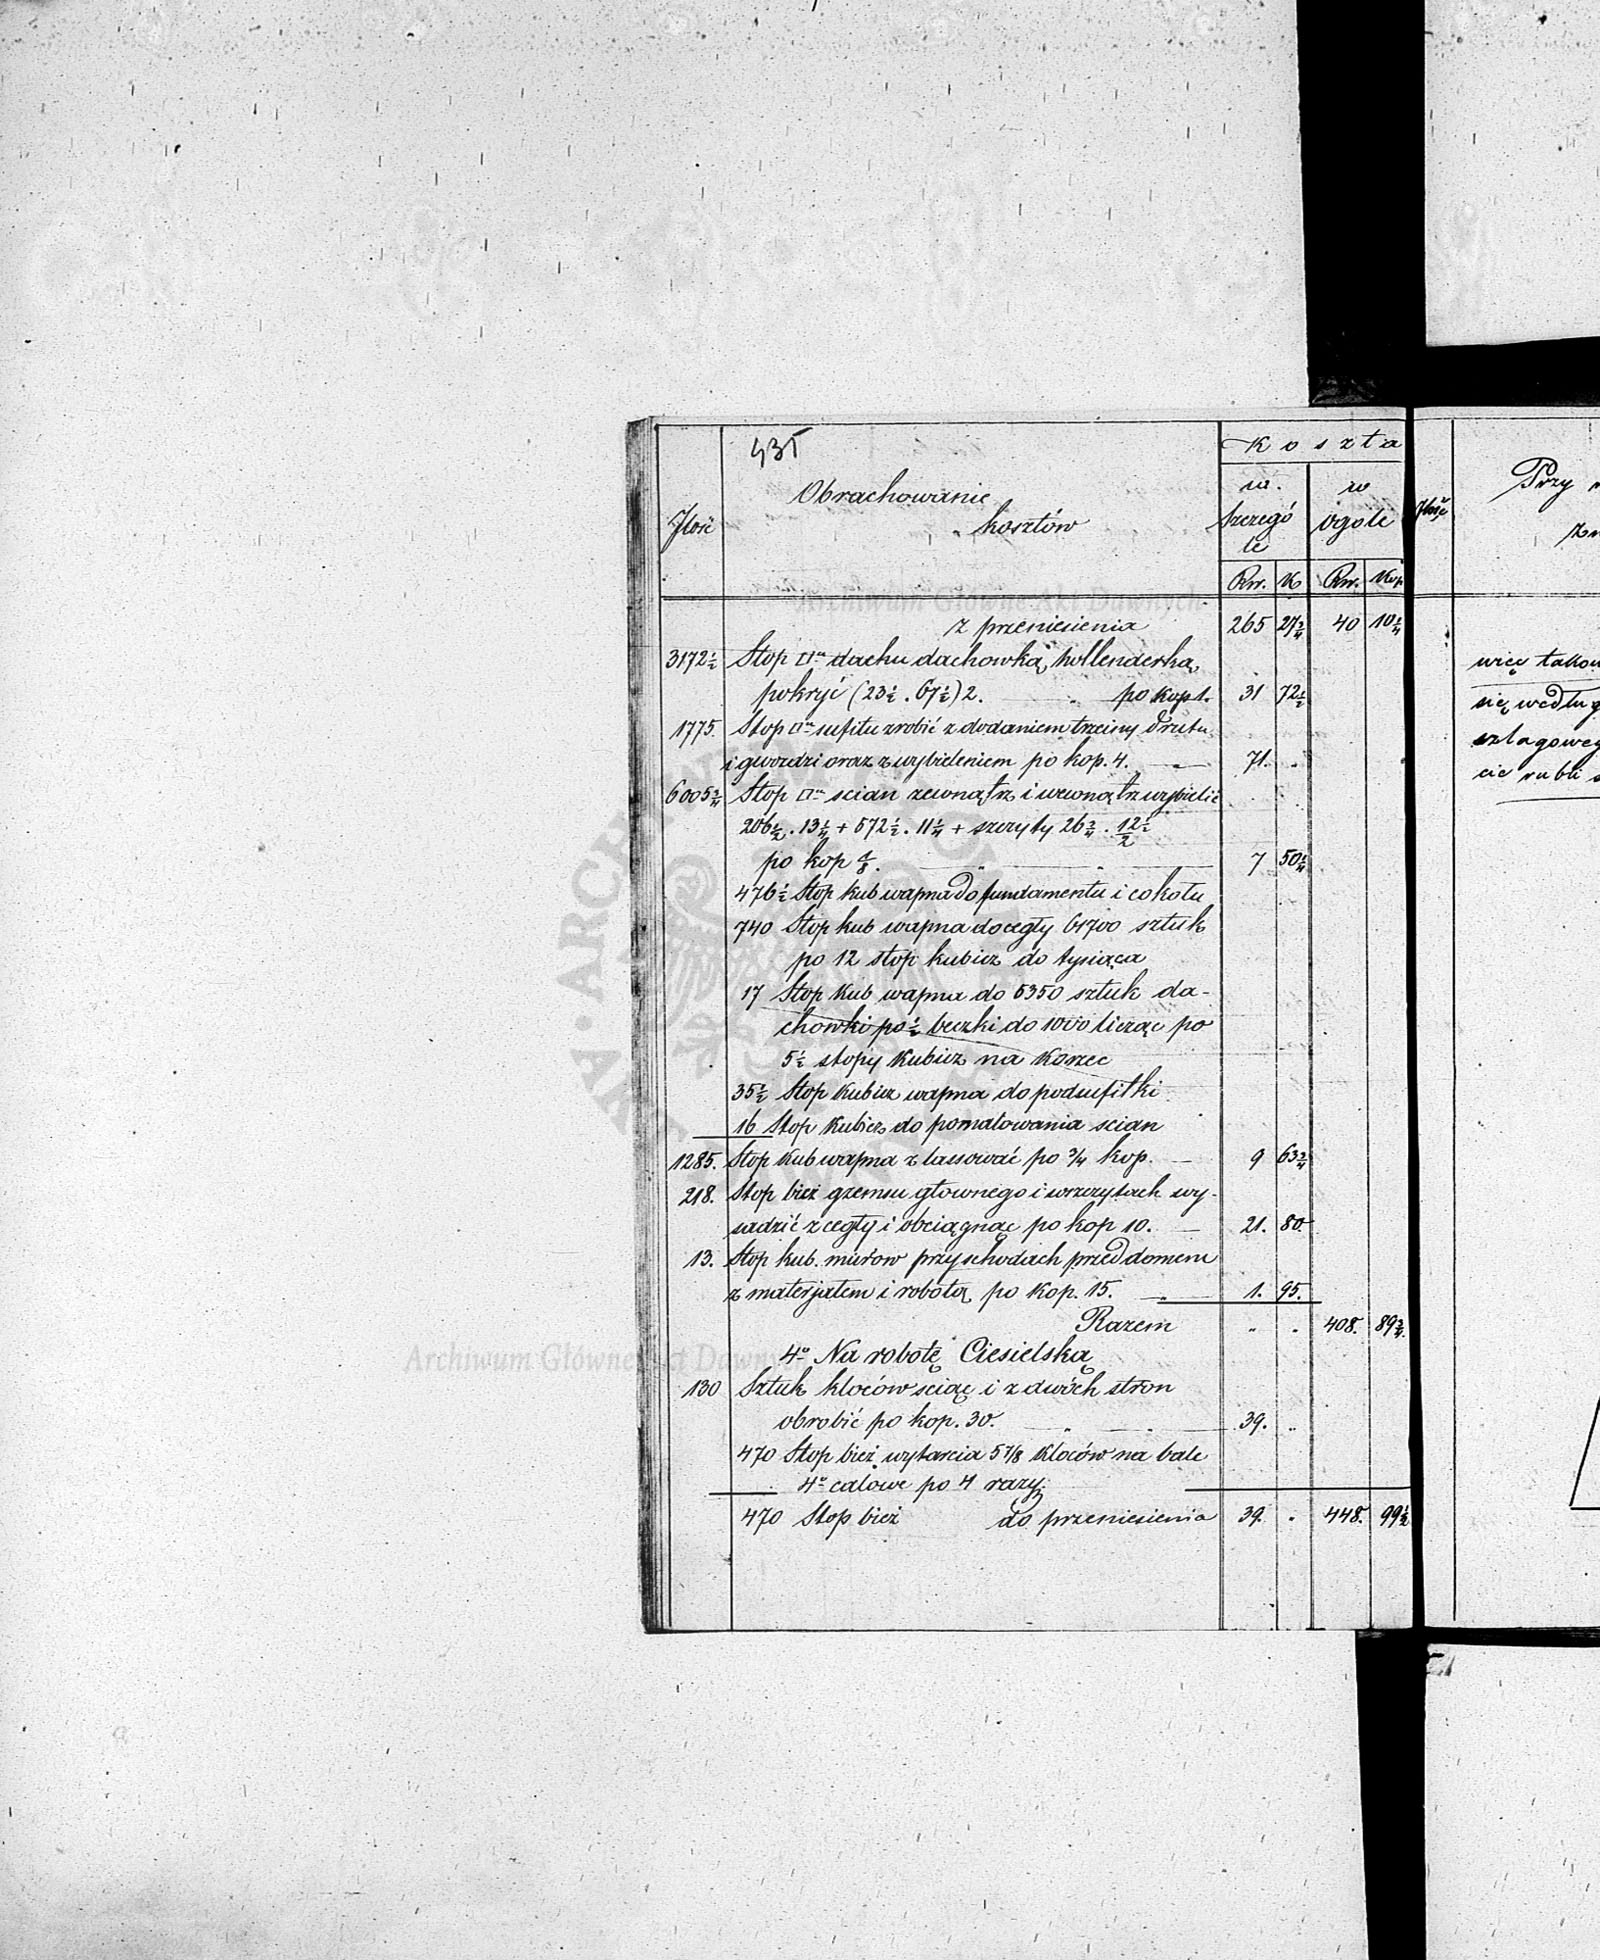 435
Koszta
Ilość
Obrachowanie
kosztów
w
szczegó
le
w
ogole
Rsr. K Rsr. Kop
z przeniesienia 265 27 3/4 40 10 1/4
3172 1/2 Stop □ᵐ dachu dachowką hollenderką
pokryć (23 1/2 . 67 1/2) 2. po kop 1. 31 72 1/2
1775. Stop □ᵐ sufitu zrobić z dodaniem trzciny drutu
i gwozdzi oraz z wybieleniem po kop. 4. 71. .
6005 3/4 Stop □ᵐ scian zewnątrz i wewnątrz wybielić
206 1/2 . 13 1/4 + 572 1/2 . 11 1/4 + szczyty 26 3/4 . 12 1/2 / 2
po kop 1/8. 7 50 1/4
476 1/2 Stop kub wapna do fundamentu i cokołu
740 Stop kub wapna do cegły 61700 sztuk
po 12 stop kubicz do tysiąca
17 Stop kub wapna do 6350 sztuk da-
chowki po 1/2 beczki do 1000 licząc po
5 1/2 stopy kubicz na korzec
35 1/2 Stop kubicz wapna do podsufitki
16 Stop kubicz do pomalowania scian
1285. Stop kub wapna zlassować po 3/4 kop. 9 63 3/4
218. Stop bież gzemsu głownego i w szczytach wy-
sadzić z cegły i obciągnąć po kop 10. 21. 80
13. Stop kub. murow przy schodach przed domem
z materjałem i robotą po kop. 15. 1. 95.
Razem " . 408. 89 3/4.
4º Na robotę Ciesielską
130 Sztuk kloców sciąć i z dwóch stron
obrobić po kop. 30. 39. "
470 Stop bież wytarcia 5 7/8 kloców na bale
4º calowe po 4 razy
470 Stop bież do przeniesienia 39. . 448. 99 1/2
Ilość
Przy
więc takow
się według
szlagoweg
cie rubli s
Archiwum Główne Akt Dawnych
Archiwum Główne Akt Dawnych